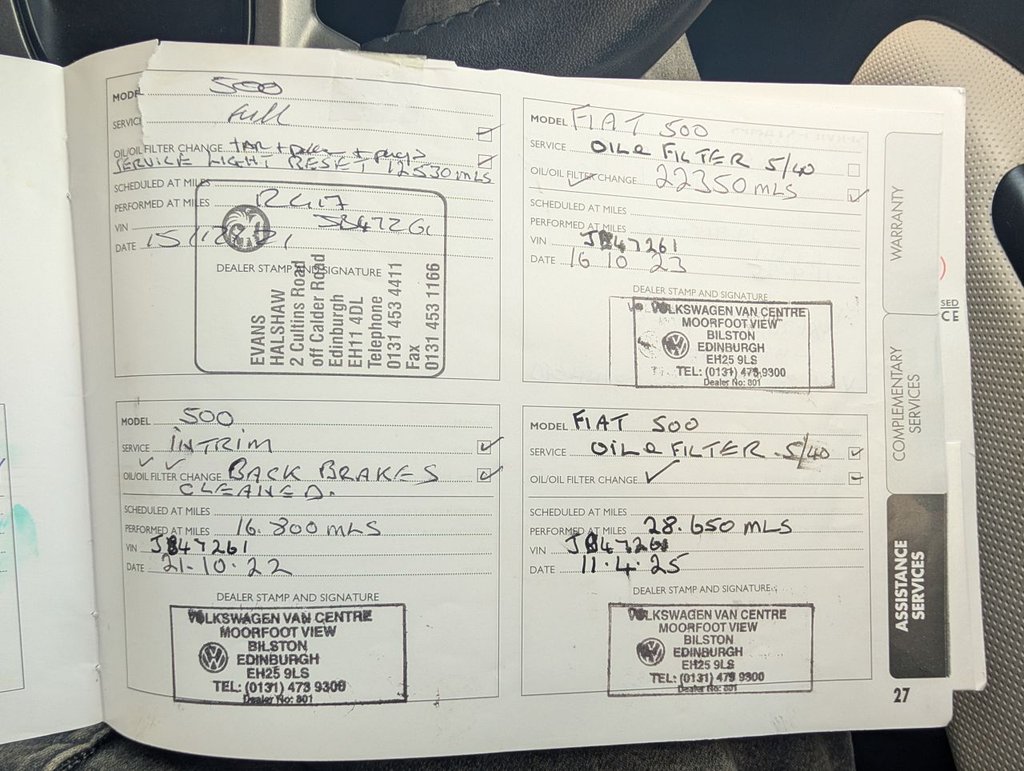 MODEL 500
SERVICE Full
OIL/OIL FILTER CHANGE
SERVICE LIGHT RESET 12530 MLS
SCHEDULED AT MILES
PERFORMED AT MILES
VIN
DATE
DEALER STAMP AND SIGNATURE
EVANS
HALSHAW
2 Cultins Road
off Calder Road
Edinburgh
EH11 4DL
Telephone
0131 453 4411
Fax
0131 453 1166
MODEL 500
SERVICE INTRIM
OIL/OIL FILTER CHANGE BACK BRAKES
CLEANED.
SCHEDULED AT MILES
PERFORMED AT MILES 16.800 MLS
VIN J847261
DATE 21.10.22
DEALER STAMP AND SIGNATURE
VOLKSWAGEN VAN CENTRE
MOORFOOT VIEW
BILSTON
EDINBURGH
EH25 9LS
TEL: (0131) 473 9300
Dealer No: 801
MODEL FIAT 500
SERVICE OIL & FILTER 5/40
OIL/OIL FILTER CHANGE 22350 MLS
SCHEDULED AT MILES
PERFORMED AT MILES
VIN J847261
DATE 16 10 23
DEALER STAMP AND SIGNATURE
VOLKSWAGEN VAN CENTRE
MOORFOOT VIEW
BILSTON
EDINBURGH
EH25 9LS
TEL: (0131) 473 9300
Dealer No: 801
MODEL FIAT 500
SERVICE OIL & FILTER 5/40
OIL/OIL FILTER CHANGE
SCHEDULED AT MILES
PERFORMED AT MILES 28.650 MLS
VIN J847261
DATE 11.4.25
DEALER STAMP AND SIGNATURE
VOLKSWAGEN VAN CENTRE
MOORFOOT VIEW
BILSTON
EDINBURGH
EH25 9LS
TEL: (0131) 473 9300
Dealer No: 801
WARRANTY
COMPLEMENTARY
SERVICES
ASSISTANCE
SERVICES
27